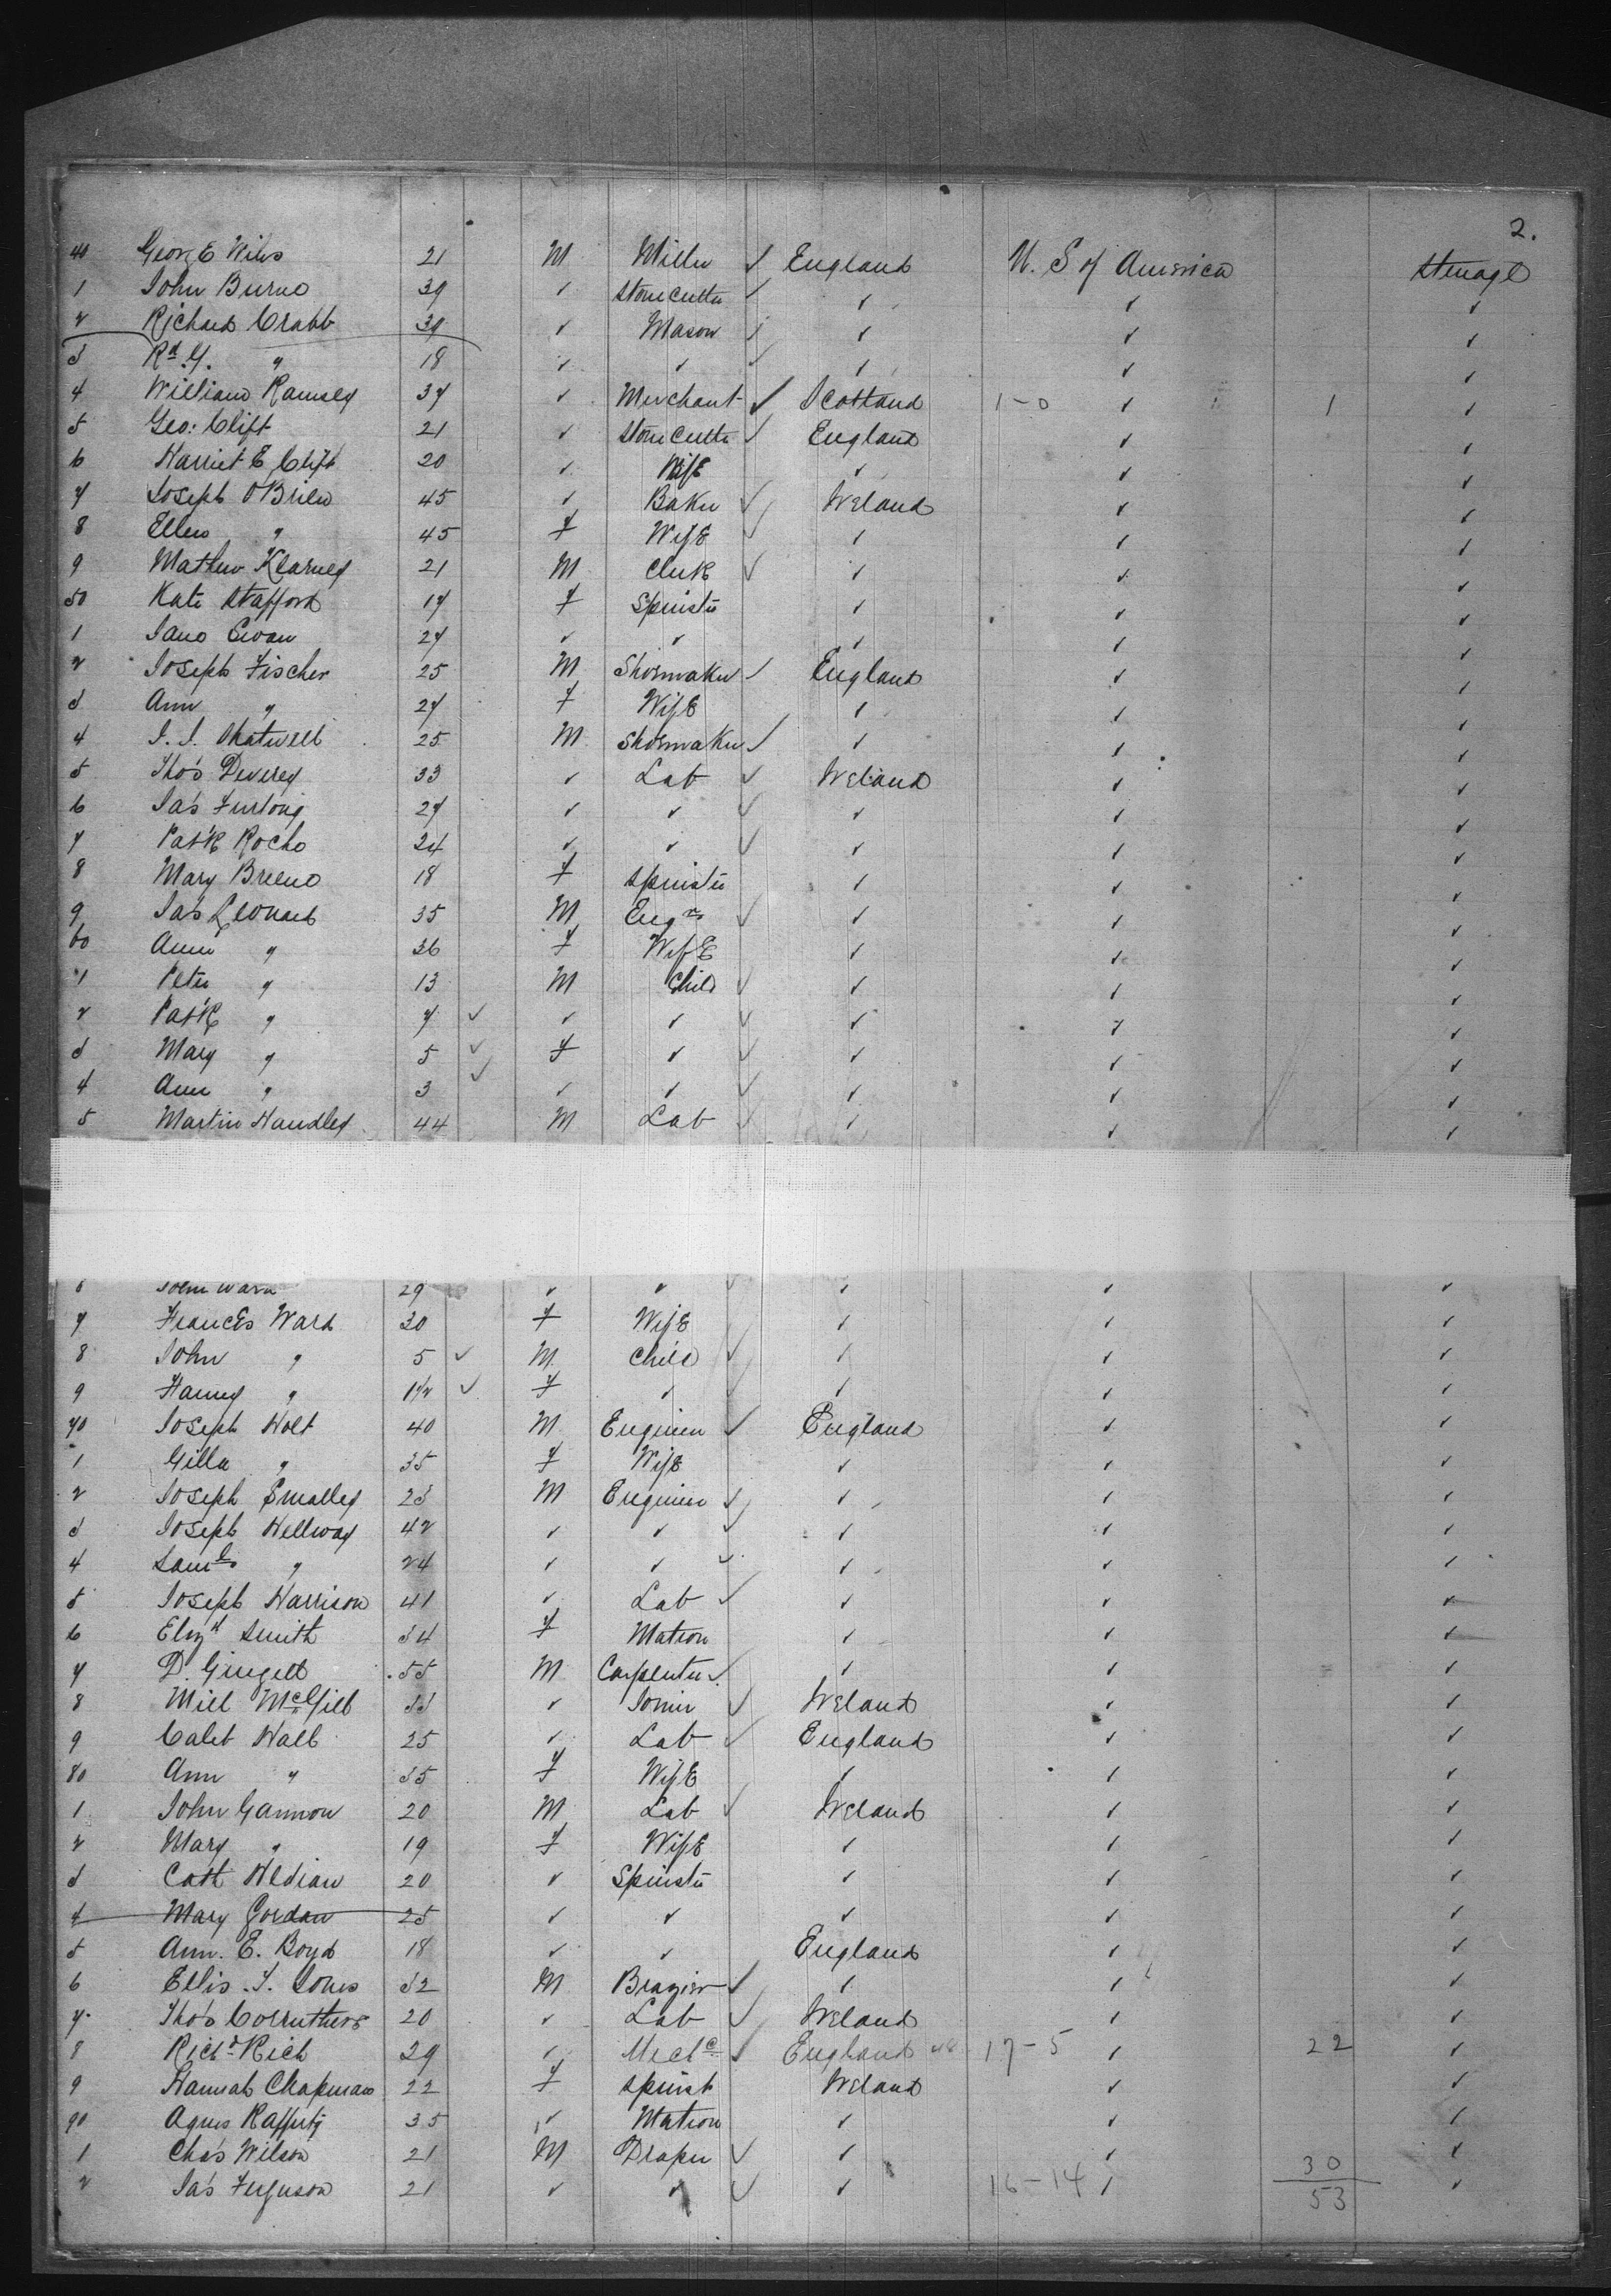 2.
40 George Wiles 21 M Miller ✓ England U. S of America Steerage
1 John Burns 39 ✓ Stonecutter ✓ ✓ ✓ ✓
2 Richard Crabb 39 ✓ Mason ✓ ✓ ✓ ✓
3 Rd. Y. " 18 ✓ ✓ ✓ ✓ ✓ ✓
4 William Ramsey 37 ✓ Merchant ✓ Scotland 1-0 ✓ 1 ✓
5 Geo: Clift 21 ✓ Stonecutter ✓ England ✓ ✓
6 Harriet E Clift 20 ✓ Wife ✓ ✓ ✓
7 Joseph O'Brien 45 ✓ Baker ✓ Ireland ✓ ✓
8 Ellen " 45 F Wife ✓ ✓ ✓ ✓
9 Mathew Kearney 21 M Clerk ✓ ✓ ✓ ✓
50 Kate Stafford 17 F Spinster ✓ ✓ ✓
1 Jane Ewan 27 ✓ ✓ ✓ ✓ ✓
2 Joseph Fischer 25 M Shoemaker ✓ England ✓ ✓
3 Ann " 27 F Wife ✓ ✓ ✓
4 J. J. Shatwell 25 M Shoemaker ✓ ✓ ✓ ✓
5 Thos Deverey 33 ✓ Lab ✓ Ireland ✓ ✓
6 Jas Furlong 27 ✓ ✓ ✓ ✓ ✓ ✓
7 Patk Roche 24 ✓ ✓ ✓ ✓ ✓ ✓
8 Mary Breene 18 F Spinster ✓ ✓ ✓
9 Jas Leonard 35 M Engr ✓ ✓ ✓ ✓
60 Ann " 36 F Wife ✓ ✓ ✓
1 Peter " 13 M Child ✓ ✓ ✓ ✓
2 Patk " 7 ✓ ✓ ✓ ✓ ✓ ✓ ✓
3 Mary " 5 ✓ F ✓ ✓ ✓ ✓ ✓
4 Ann " 3 ✓ ✓ ✓ ✓ ✓ ✓ ✓
5 Martin Handley 44 M Lab ✓ ✓ ✓ ✓
6 John Ward 29 ✓ ✓ ✓ ✓ ✓ ✓
7 Frances Ward 30 F Wife ✓ ✓ ✓
8 John " 5 ✓ M Child ✓ ✓ ✓ ✓
9 Fanny " 1½ ✓ F ✓ ✓ ✓ ✓ ✓
70 Joseph Holt 40 M Engineer ✓ England ✓ ✓
1 Gilla " 35 F Wife ✓ ✓ ✓
2 Joseph Smalley 23 M Engineer ✓ ✓ ✓ ✓
3 Joseph Hellway 42 ✓ ✓ ✓ ✓ ✓ ✓
4 Saml " 24 ✓ ✓ ✓ ✓ ✓ ✓
5 Joseph Harrison 41 ✓ Lab ✓ ✓ ✓ ✓
6 Elizh Smith 34 F Matron ✓ ✓ ✓
7 D. Gingell 55 M Carpenter ✓ ✓ ✓ ✓
8 Will McGill 33 ✓ Joiner ✓ Ireland ✓ ✓
9 Caleb Hall 25 ✓ Lab ✓ England ✓ ✓
80 Ann " 35 F Wife ✓ ✓ ✓
1 John Gannon 20 M Lab ✓ Ireland ✓ ✓
2 Mary " 19 F Wife ✓ ✓ ✓
3 Cath Hedian 20 ✓ Spinster ✓ ✓ ✓
4 Mary Gordan 25 ✓ ✓ ✓ ✓ ✓
5 Ann. E. Boyd 18 ✓ ✓ England ✓ ✓
6 Ellis. J. Jones 32 M Brazier ✓ ✓ ✓ ✓
7 Thos Corruthers 20 ✓ Lab ✓ Ireland ✓ ✓
8 Richd Rich 29 ✓ Mechc ✓ England 17-5 ✓ 22 ✓
9 Hannah Chapman 22 F Spinst Ireland ✓ ✓
90 Agnes Rafferty 35 ✓ Matron ✓ ✓ ✓
1 Chas Wilson 21 M Draper ✓ ✓ ✓ 30 ✓
2 Jas Ferguson 21 ✓ ✓ ✓ ✓ 16-14 ✓ 53 ✓